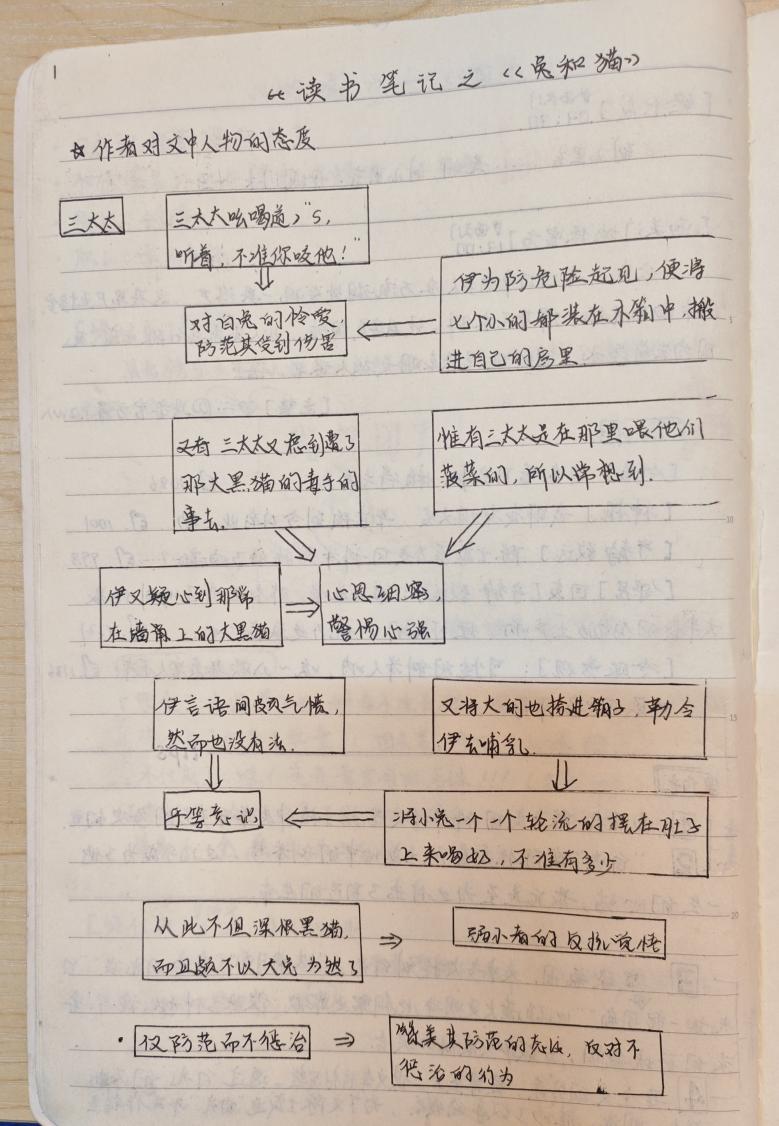 1
“读书笔记之《兔和猫》
☆作者对文中人物的态度
三太太
三太太吆喝道，“S，
听着，不准你咬他！”
伊为防危险起见，便将
七个小的都装在木箱中，搬
进自己的房里
对白兔的怜爱，
防范其受到伤害
又有三太太又虑到遭了
那大黑猫的毒手的
事去.
惟有三太太是在那里喂他们
菠菜的，所以常想到.
伊又疑心到那常
在墙角上的大黑猫
心思细密，
警惕心强
伊言语间颇气愤，
然而也没有法.
又将大的也捺进箱子，勒令
伊去哺乳.
平等意识
将小兔一个一个轮流的摆在肚子
上来喝奶，不准有多少
从此不但深恨黑猫，
而且颇不以大兔为然了
弱小者的反抗觉悟
·仅防范而不惩治
赞美其防范的态度，反对不
惩治的行为